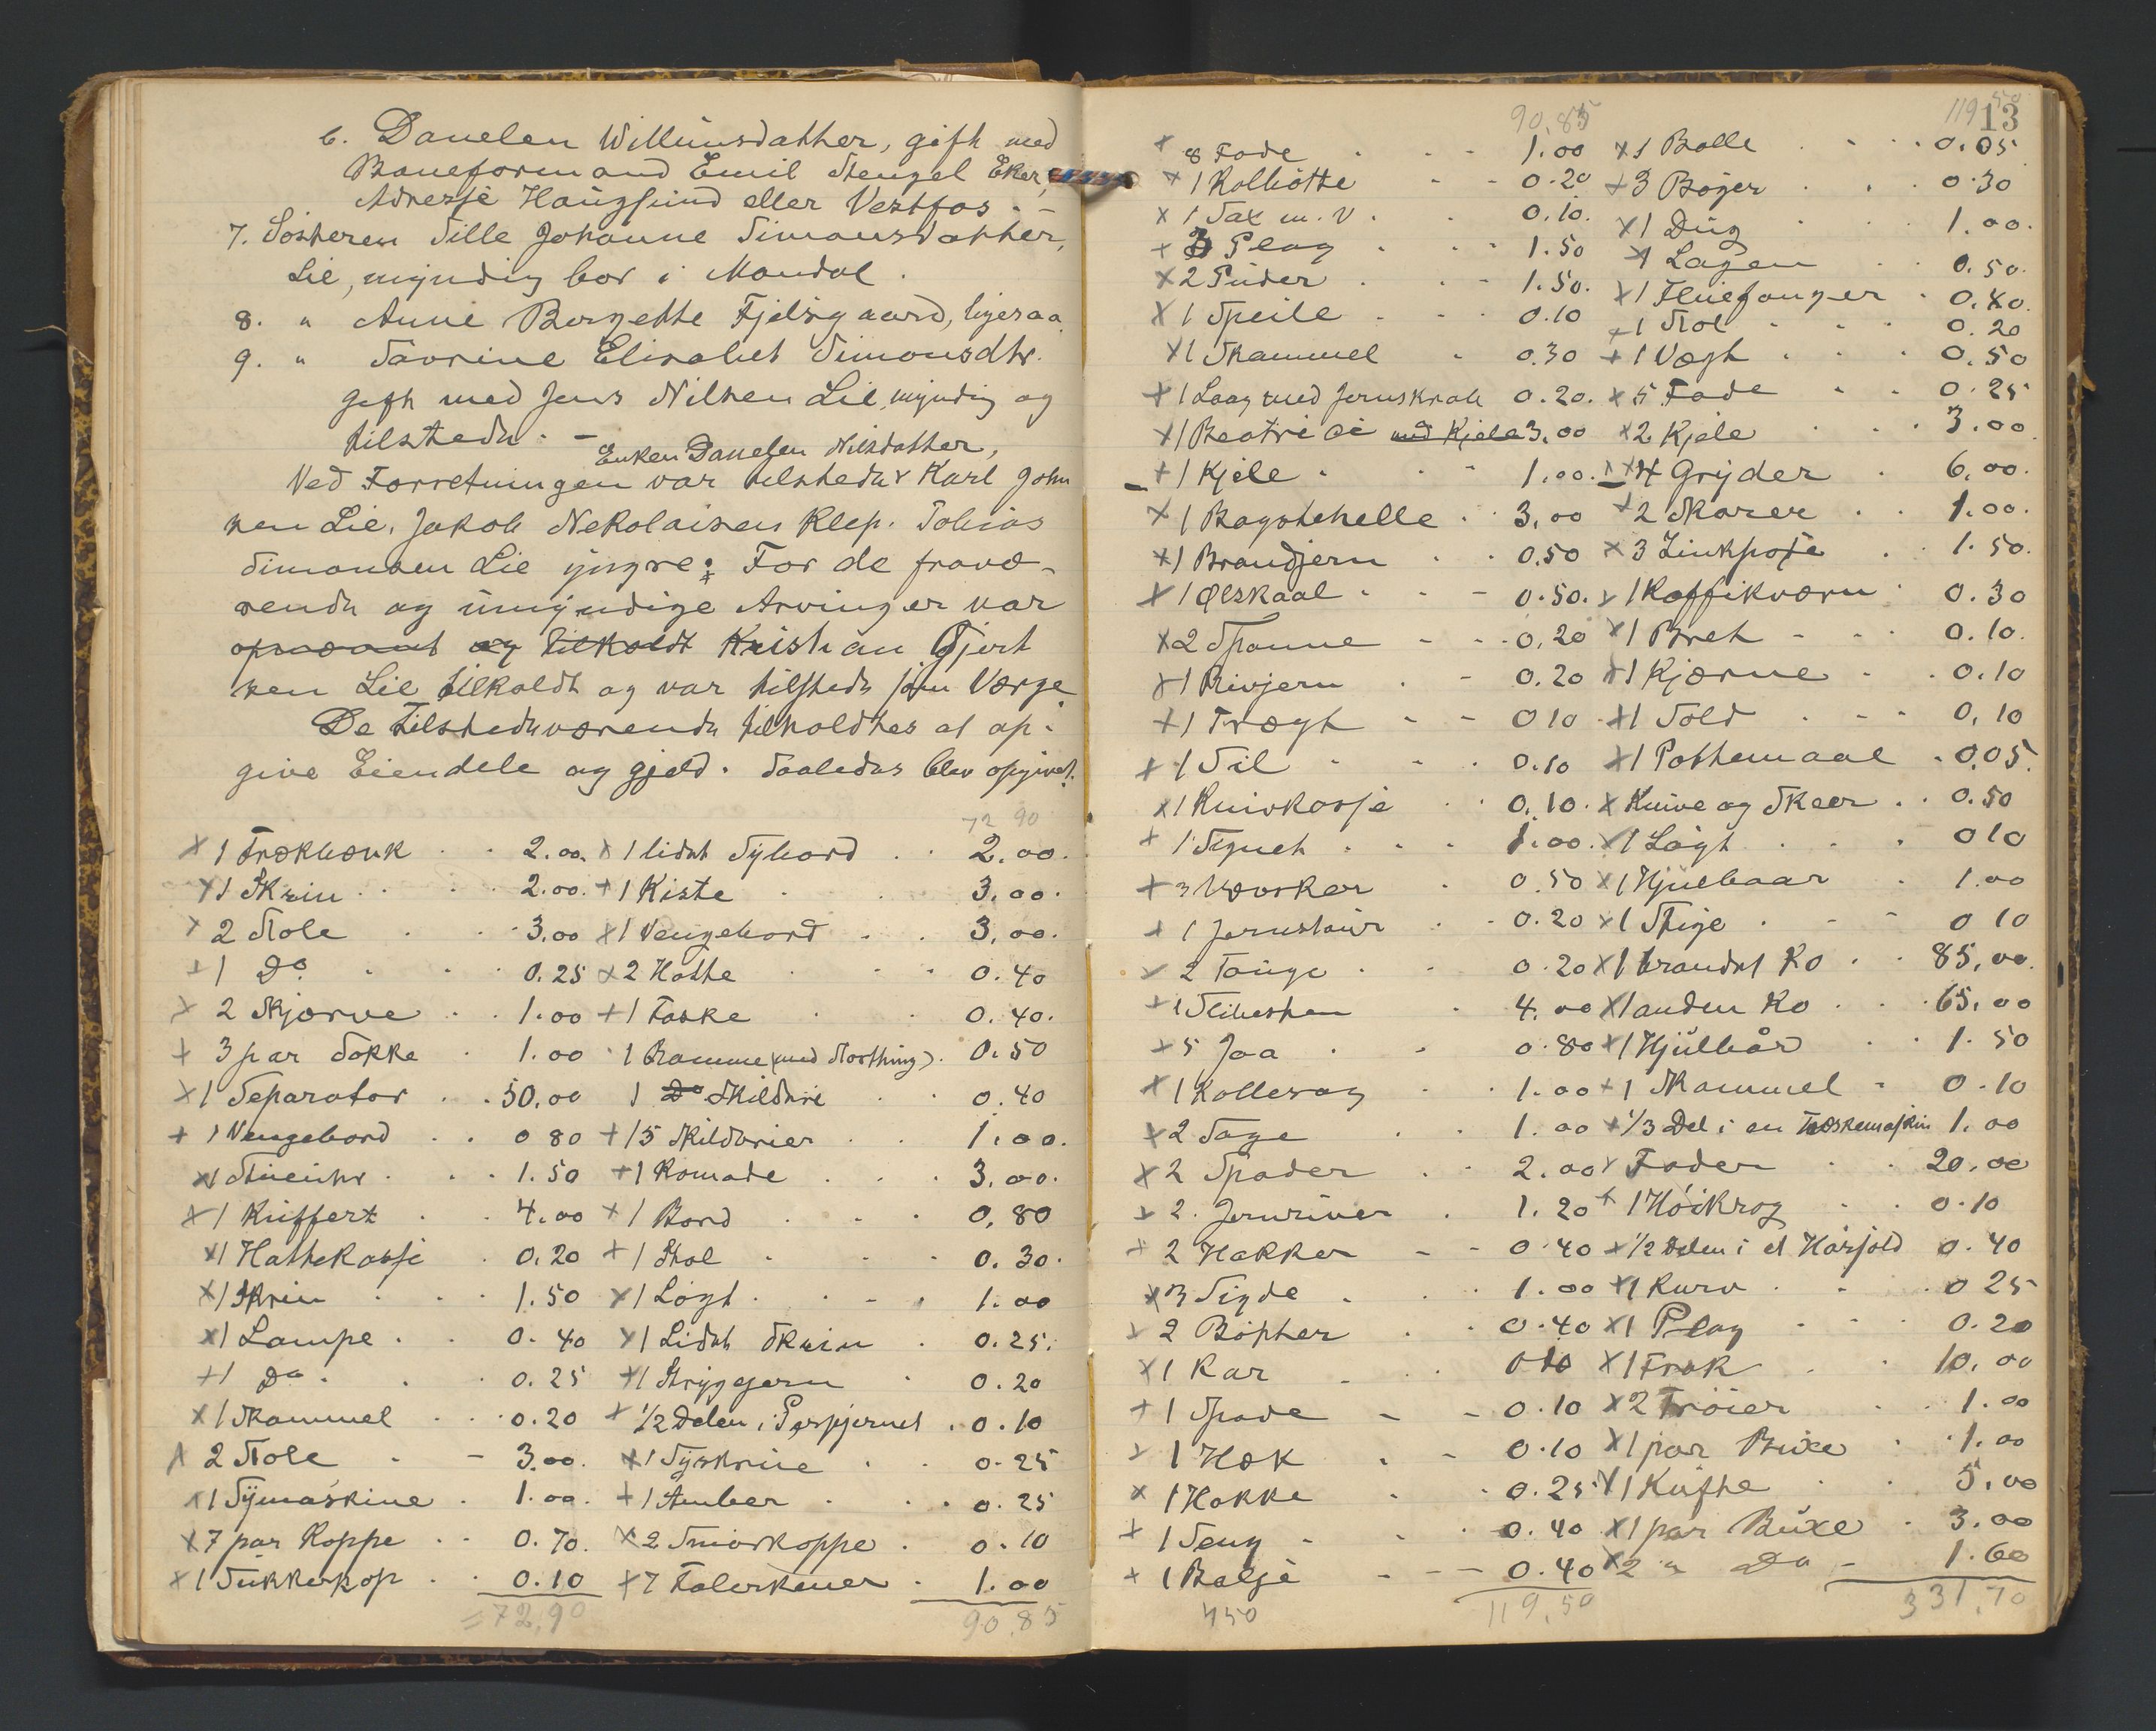 6. Danelen Willumsdatter, gift med
Baneformand Emil Stengel Eker,
Adresse Haugsund eller Vestfos. -
7. Søsteren Sille Johanne Simonsdatter,
Lie, myndig bor i Mandal.
8. " Anne Bergette Fjelsgaard, ligesaa
9. " Tavrine Elisabet Simonsdtr.
gift med Jens Nilsen Lie, myndig og
tilstede. -
Enken Danelen Nilsdatter,
Ved Forretningen var tilstede Karl John
sen Lie, Jakob Nekolaisen Klep. Tobias
Simonsen Lie yngre: For de fravæ-
rende og umyndige Arvinger var
opnævnt og tilkaldt Kristian Gjert
sen Lie tilkaldt og var tilstede som Værge
De tilstedeværende tilholdtes at op-
give Eiendele og gjeld. Saaledes blev opgivet:
72 90
x 1 Trækbænk . . 2.00. x 1 lidet Sybord . . 2.00.
x 1 Skrin . . 2.00. + 1 Kiste . 3.00.
x 2 Stole . . 3.00 x 1 Vengebord . . 3.00.
+ 1 Do. . . 0.25 x 2 Hatte . . 0.40
x 2 Skjørve . . 1.00 + 1 Taske . . 0.40.
+ 3 par Sokke . 1.00 1 Ramme (med Storthing). 0.50
x 1 Separator . . 50.00 1 Do Skilderi . . 0.40
+ 1 Vengebord . . 0 80 + 15 Skilderier . . 1.00.
x 1 Stueuhr . . . 1.50 + 1 Komode . . . 3.00.
x 1 Kuffert . . 4.00 x 1 Bord . . . 0.80
x 1 Hattekasse . 0.20 + 1 Stol . . . 0.30.
x 1 Skrin . . . 1.50 x 1 Løgt . . . 1.00
x 1 Lampe . . 0.40 x 1 Lidet Skrin . 0.25.
+ 1 Do . . . 0.25 x 1 Strygejern . 0.20
x 1 Skammel . . 0.20 + 1/2 Delen i Persjernet . 0.10
x 2 Stole . - 3.00. x 1 Syskrin . . 0.25
x 1 Symaskine . 1.00. + 1 Amber . . . 0.25
x 7 par Koppe . . 0.70. x 2 Smørkoppe . 0.10
x 1 Sukkerkop . . 0.10 x 7 Talerkener . 1.00
=72,90 90.85
90,85 119 50
13
x 8 Fade . . . 1.00 x 1 Balle . . . 0.05
x 1 Kolbøtte . . 0.20 + 3 Bøger . . 0.30
x 1 Sax m. v . . 0.10. x 1 Dug . . 1.00.
+ 3 Plag . . . 1.50 x 1 Lagen . . 0.50.
x 2 Puder . . . 1.50. x 1 Fluefanger . 0.40.
x 1 Speile . . . 0.10 + 1 Stol . . . 0.20
x 1 Skammel . 0.30 + 1 Vægt . . . 0.50
x 1 Laag med Jernskrab 0.20. x 5 Fade . . 0.25
x 1 Beatrice med Kjele 3.00 x 2 Kjele . . . 3.00
+ 1 Kjele . . . 1.00. x 4 Gryder . 6.00.
x 1 Bagstehelle . . 3.00 x 2 Skarer . . 1.00.
x 1 Brandjern . . 0.50 x 3 Zinkpose . . 1.50.
x 1 Ølskaal . . - 0.50. x 1 Kaffikværn . 0.30
x 2 Spanne - - - 0.20 x 1 Bret - . . 0.10.
x 1 Rivjern . - 0.20 x 1 Kjærne . . 0.10
+ 1 Trægt - - 0 10 x 1 Sold . . - 0.10
+ 1 Sil . . . 0.10 x 1 Pottemaal . 0.05.
x 1 Knivkasse . . 0.10. x Knive og Skeer . . 0.50
+ 1 Signet . . . 1.00. x 1 Løgt . . . 0 10
+ 3 Vævsker . 0.50 x 1 Hjulbaar . 1.00
+ 1 Jernstaur . . 0.20 x 1 Stige . - - 0 10
x 2 Tønge . . 0.20 x 1 brandet Ko . . 85.00.
+ 1 Slibesten . 4.00 x 1 anden Ko . . . 65.00
x 5 Jaa . . 0.80 x 1 Hjulbår . . 1.50
x 1 Kollesag . . 1.00 + 1 Skammel . 0.10
x 2 Sage . . 1.00 + 1/3 Del i en Træskemaskin 1.00
x 2 Spader . . 2.00 x Foder . . 20.00
x 2. Jernriver . 1.20 x 1 Høikrog . . 0.10
+ 2 Hakker - - 0.40 x 1/2 Delen i et Hårsold 0.40
x 3 Sigde . . . 1.00 x 1 Kurv . . . 0 25
x 2 Bøtter . . 0.40 x 1 Plag . . . 0.20
x 1 Kar . . 0 10 x 1 Frak . . 10.00
+ 1 Spade - - 0.10 x 2 Trøier . . 1.00
x 1 Hæk . - 0.10 x 1 par Buxe . . 1.00
x 1 Hakke . . 0.25 x 1 Kufte . . 5.00
+ 1 Seng . . . 0.40 x 1 par Buxe . 3.00
+ 1 Balje - - - 0.40 x 2 " Do - 1.60
450 119,50 331,70